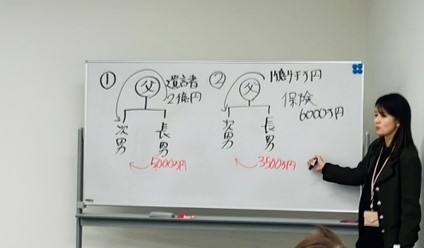 ①
父
遺言者
2億円
次男
長男
5000万円
②
父
1億4千万円
保険
6000万円
次男
長男
3500万円